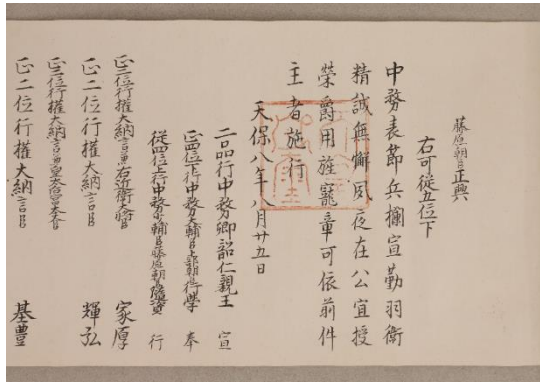 藤原朝臣正興
右可從五位下
中務表節兵欄宣勤羽衛
精誠無懈夙夜在公宜授
榮爵用旌寵章可依前件
主者施行
天保八年八月廿五日
二品行中務卿韶仁親王 宣
正四位下行中務大輔臣 朝臣 學 奉
從四位上行中務少輔臣藤原朝臣隆資 行
正二位行權大納言兼右近衛大將臣 家厚
正二位行權大納言臣 輝弘
正二位行權大納言兼皇太后宮大夫臣
正二位行權大納言臣 基豊